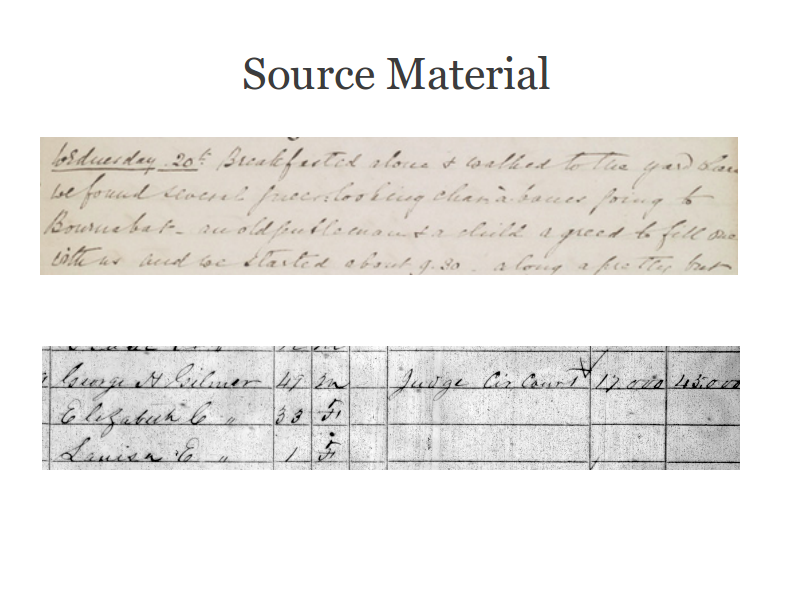 Source Material
Wednesday 20th Breakfasted alone & walked to the yard
we found several queer looking char à bancs going to
Bournabat - an old gentleman & a child agreed to fill one
with us and we started about 9.30. along a pretty but
George H Gilmer 49 m Judge Cir Court 17,000 45,000
Elizabeth C " 33 F
Louisa E " 1 F